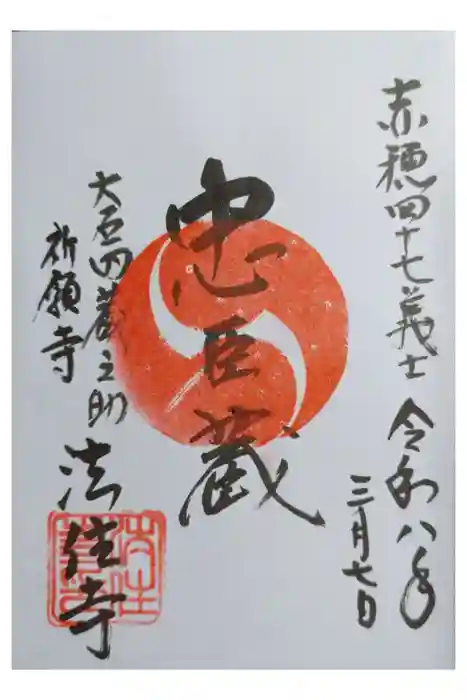 赤穂四十七義士 令和八年
三月七日
忠臣蔵
大石内蔵之助
祈願寺
法住寺